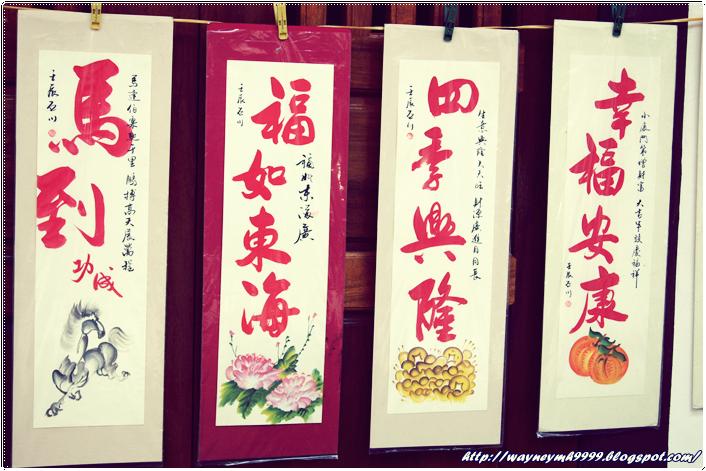 馬到
功成
馬逢伯樂馳千里 鵬搏高天展萬程
壬辰
福如東海
福如東海廣
壬辰
四季興隆
生意興隆天天旺 財源廣進月月長
壬辰
幸福安康
小康門第增財富 大吉年 慶福祥
壬辰
http://wayneymh9999.blogspot.com/